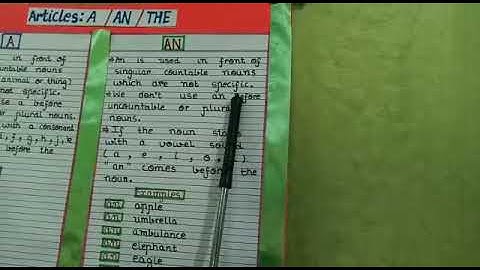 Articles: A / AN / THE
A
in front of
countable nouns
animal or thing?
not specific.
use a before
or plural nouns.
with a consonant
, f, g, h, j, k
before the
AN
→ An is used in front of
singular countable nouns
which are not specific.
→ We don't use an before
uncountable or plural
nouns.
→ If the noun
with a vowel sound
( a , e , i , o , )
"an" comes before the
noun.
Examples
an apple
an umbrella
an ambulance
an elephant
an eagle